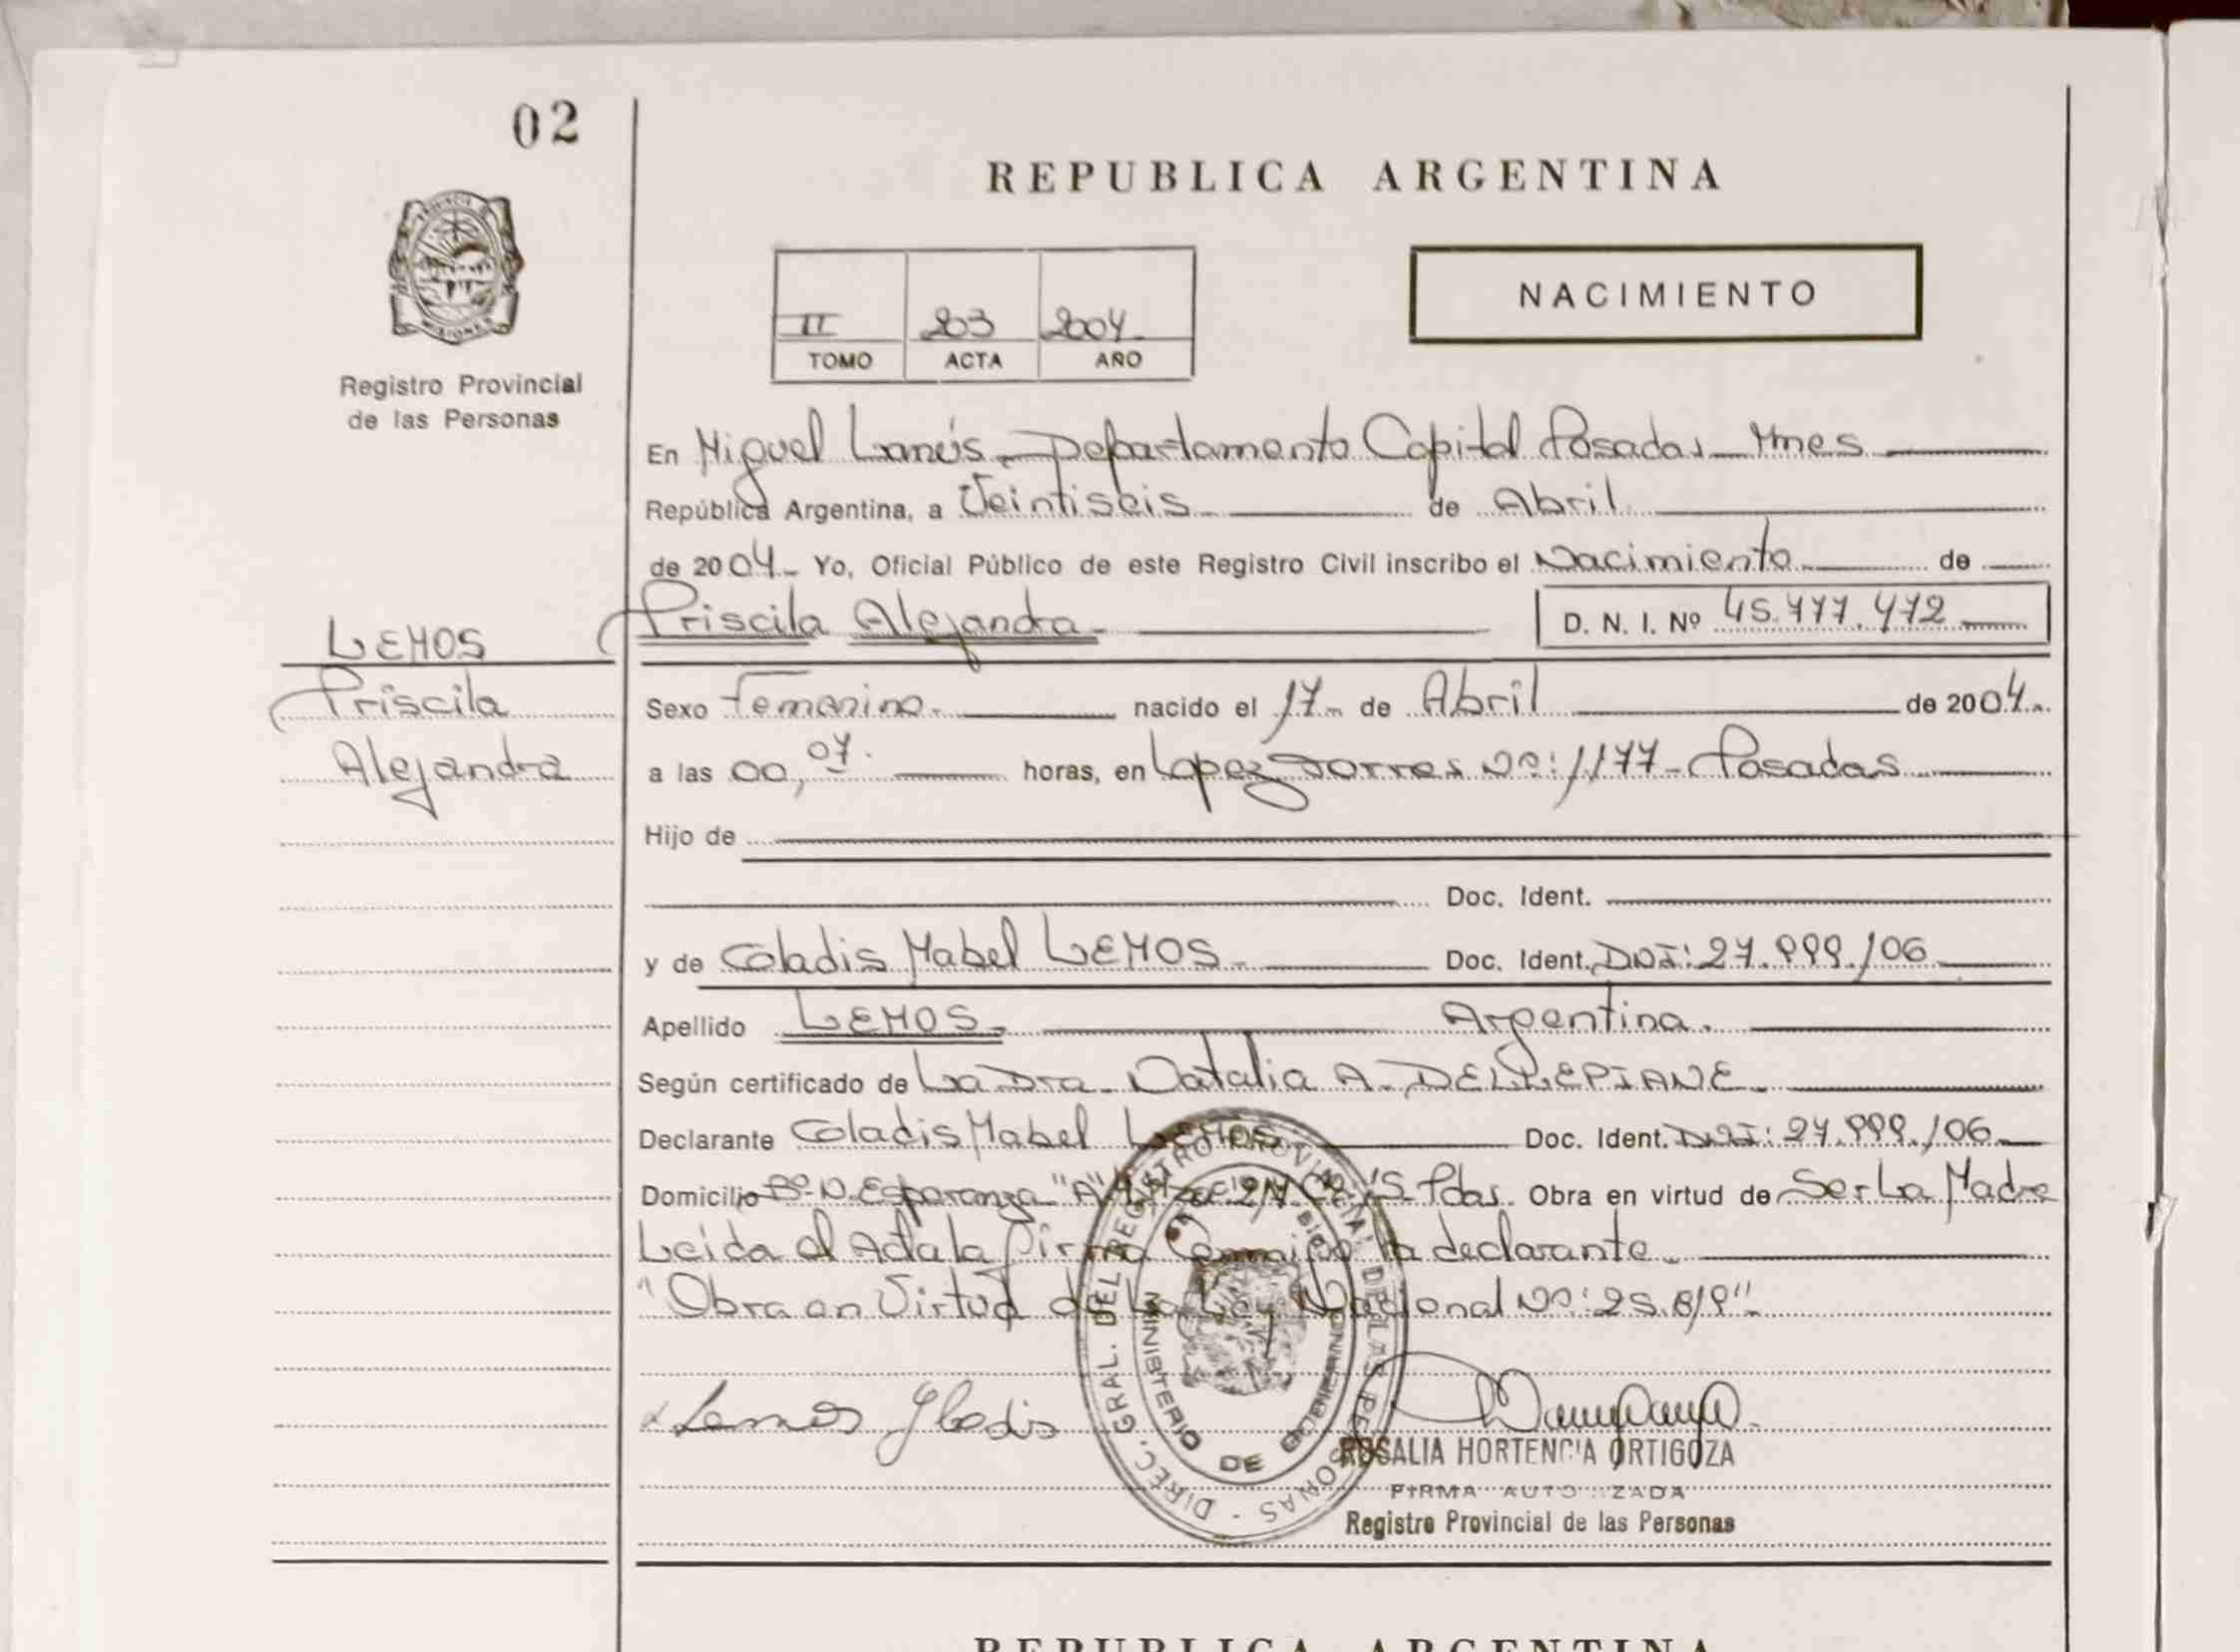 02
REPUBLICA ARGENTINA
PROVINCIA DE
MISIONES
Registro Provincial
de las Personas
II 203 2004
TOMO ACTA AÑO
NACIMIENTO
En Miguel Lanús - Departamento Capital Posadas - Mnes
República Argentina, a Veintiseis de Abril
de 2004 - Yo, Oficial Público de este Registro Civil inscribo el Nacimiento de
Priscila Alejandra - D. N. I. Nº 45.477.472
LEMOS
Priscila
Alejandra
Sexo Femenino. nacido el 17 - de Abril de 2004.
a las 00,07. horas, en Lopez Torres Nº: 1177 - Posadas
Hijo de
Doc. Ident.
y de Gladis Mabel LEMOS. Doc. Ident. DNI: 27.999.106
Apellido LEMOS. Argentina.
Según certificado de La Dra. Natalia A. DELLEPIANE.
Declarante Gladis Mabel LEMOS Doc. Ident. DNI: 27.999.106
Domicilio Bº N. Esperanza "A" Pdas. Obra en virtud de Ser La Madre
Leida el Acta la firma Conmigo la declarante.
"Obra en Virtud de La Ley Nacional Nº: 25.819"
Lemos Gladis
DIREC. GRAL. DEL REGISTRO PROVINCIAL DE LAS PERSONAS -
MINISTERIO DE GOBIERNO
ROSALIA HORTENCIA ORTIGOZA
FIRMA AUTORIZADA
Registro Provincial de las Personas
REPUBLICA ARGENTINA